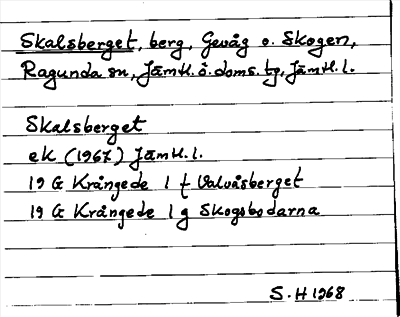 Skalsberget, berg, Gevåg o. Skogen,
Ragunda sn, Jämtl. ö. doms. tg, Jämtl. l.
Skalsberget
ek (1967) Jämtl. l.
19 G Krångede 1 f Valvåsberget
19 G Krångede 1 g Skogsbodarna
S. H 1968